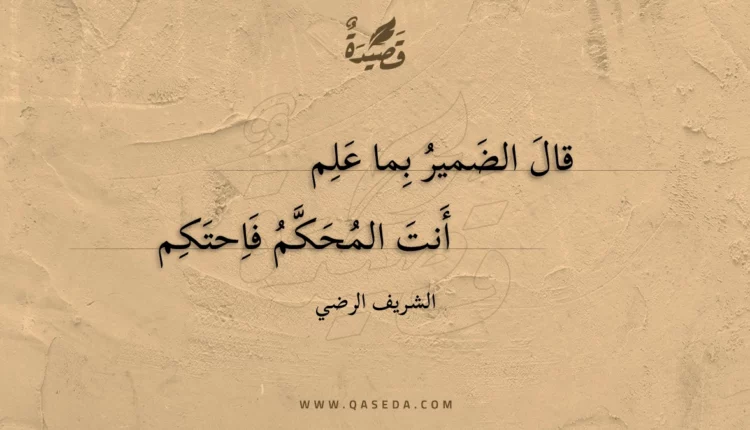 قَصِيدَةٌ
قالَ الضَميرُ بِما عَلِم
أَنتَ المُحَكَّمُ فَاِحتَكِم
الشريف الرضي
WWW.QASEDA.COM